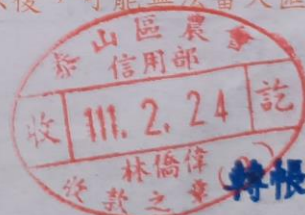 泰山區農會
信用部
收 111. 2. 24 訖
林僑偉
收款之章
轉帳